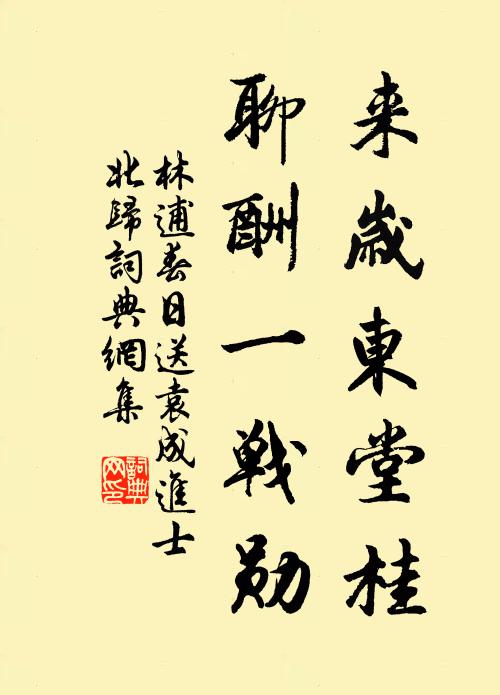 来歲東堂桂
聊酬一戰勛
林逋春日送袁成進士
北歸詞典網集
詞典網印